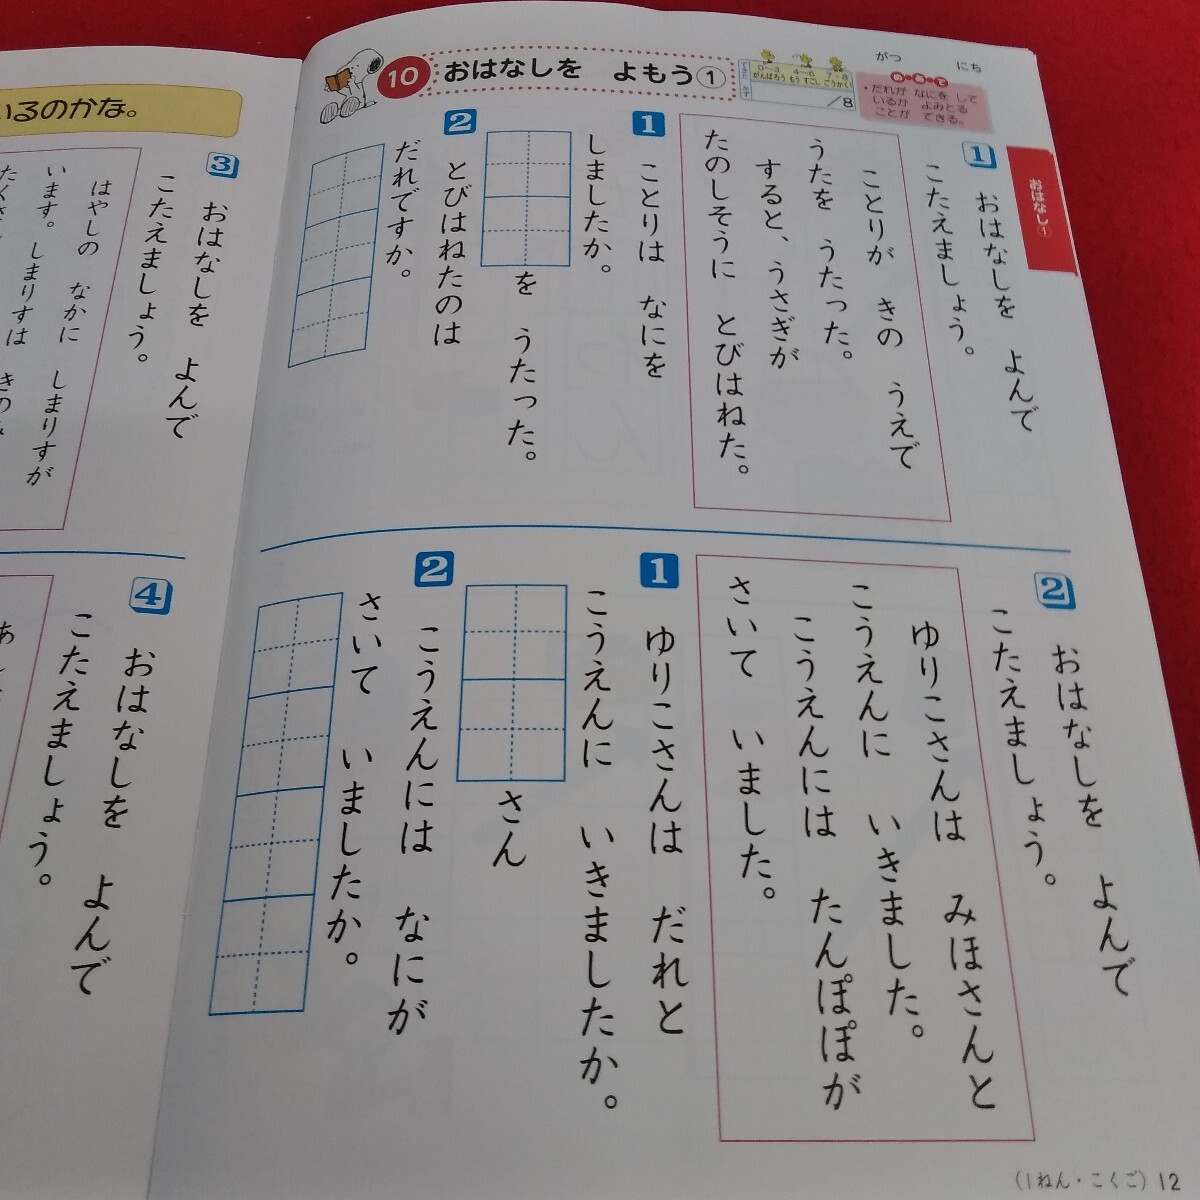 10 おはなしを よもう①
0〜3 がんばろう
4〜6 もうすこし
7・8 ごうかく!
／8
がつ にち
めあて
・だれが なにを して
いるか よみとる
ことが できる。
おはなし①
1 おはなしを よんで
こたえましょう。
ことりが きの うえで
うたを うたった。
すると、うさぎが
たのしそうに とびはねた。
1 ことりは なにを
しましたか。
を うたった。
2 とびはねたのは
だれですか。
2 おはなしを よんで
こたえましょう。
ゆりこさんは みほさんと
こうえんに いきました。
こうえんには たんぽぽが
さいて いました。
1 ゆりこさんは だれと
こうえんに いきましたか。
さん
2 こうえんには なにが
さいて いましたか。
(1ねん・こくご) 12
いるのかな。
3 おはなしを よんで
こたえましょう。
はやしの なかに しまりすが
います。しまりすは
4 おはなしを よんで
こたえましょう。